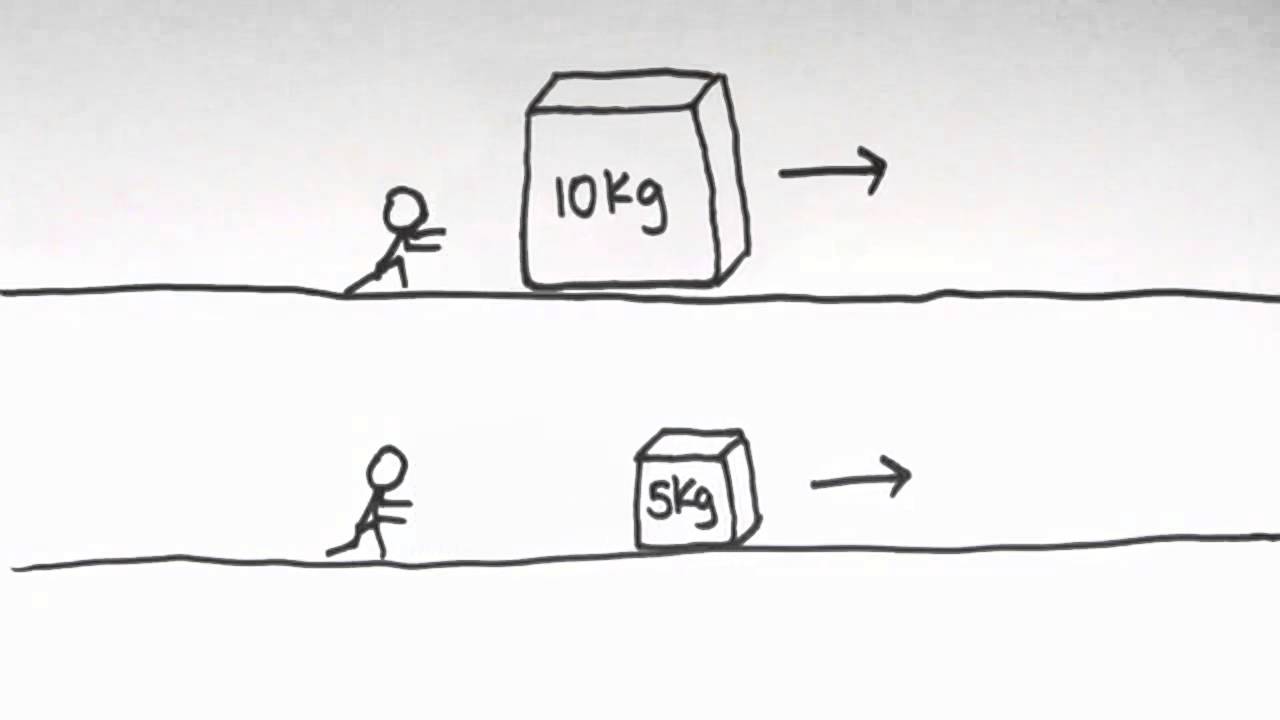 10kg
5kg